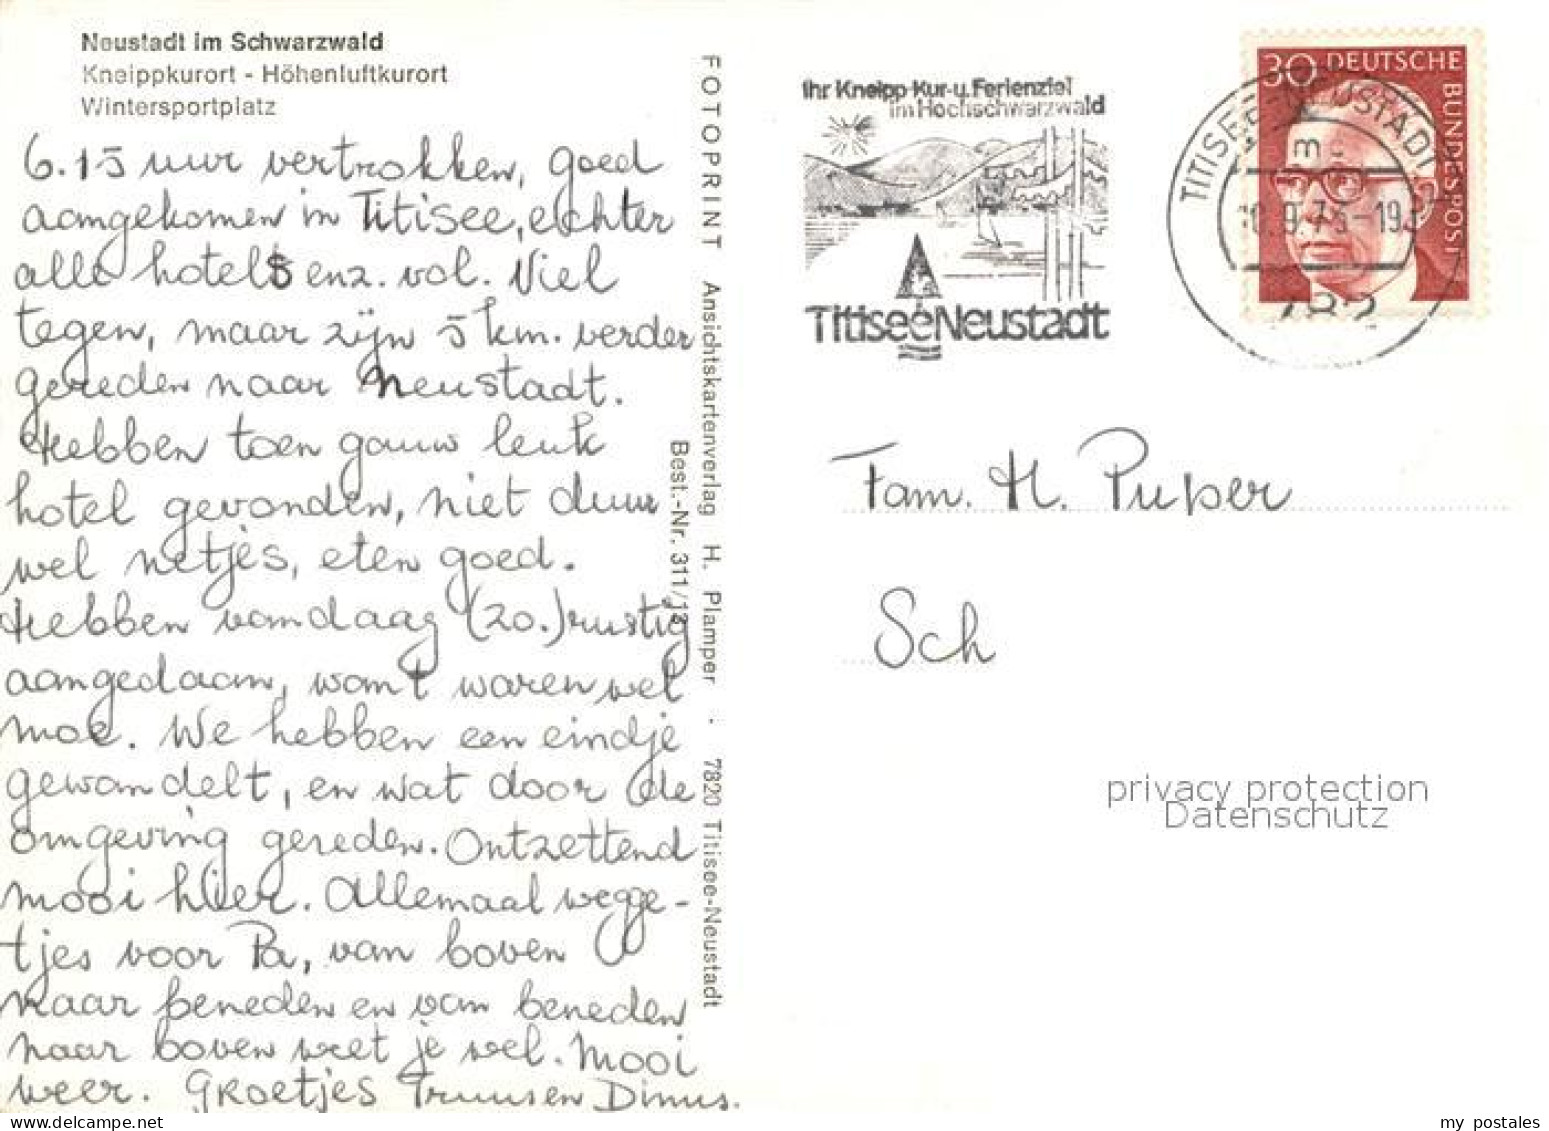 Neustadt im Schwarzwald
Kneippkurort - Höhenluftkurort
Wintersportplatz
6.15 uur vertrokken, goed
aangekomen in Titisee, echter
alle hotels enz. vol. Viel
tegen, maar zijn 5 km. verder
gereden naar Neustadt.
Hebben toen gauw leuk
hotel gevonden, niet duur
wel netjes, eten goed.
Hebben vandaag (20.) rustig
aangedaan, want waren wel
moe. We hebben een eindje
gewandelt, en wat door de
omgeving gereden. Ontzettend
mooi hier. Allemaal wegge-
tjes voor Pa, van boven
naar beneden en van beneden
naar boven weet je wel. Mooi
weer. Groetjes Truus en Dinus.
FOTOPRINT Ansichtskartenverlag H. Plamper · 7820 Titisee-Neustadt
Best.-Nr. 311/
Ihr Kneipp-Kur-u. Ferienziel
im Hochschwarzwald
Titisee Neustadt
30 DEUTSCHE
BUNDESPOST
TITISEE-NEUSTADT
782
Fam. H.
Sch
privacy protection
Datenschutz
my postales